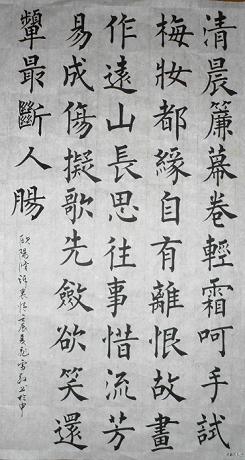 清晨簾幕卷輕霜呵手試
梅妝都緣自有離恨故畫
作遠山長思往事惜流芳
易成傷擬歌先斂欲笑還
顰最斷人腸
歐陽修訴衷情壬辰